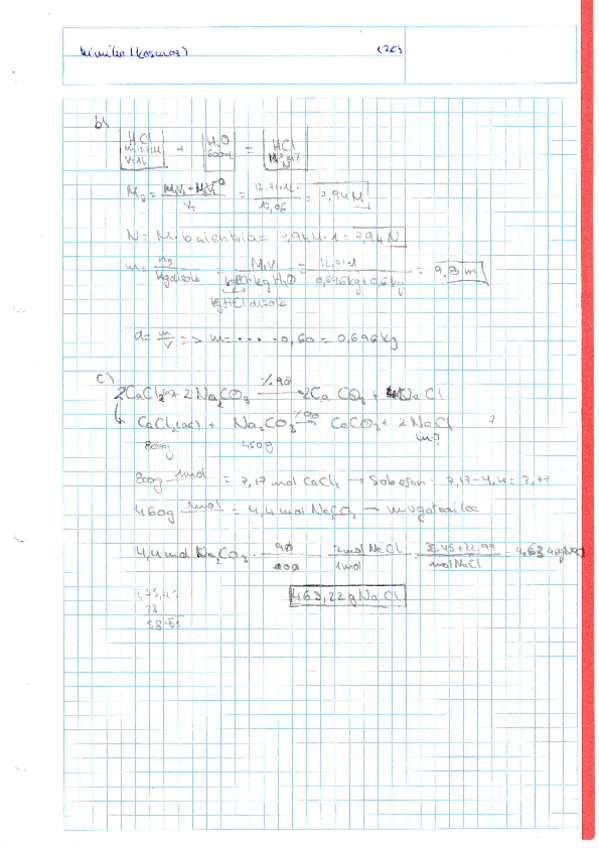 (20)
b)
HCl + H2O = HCl
V=1L 600mL M? m? N
M2 = M1V1 + M2V2 / VT = 12,71·1L / = 7,94 M
N = M·balentzia = 7,94·1 = 7,94 N
m = n2 / kg disolb = M1V1 / kg H2O = 12,71·1 / 0,696kg+0,6kg = 9,8 m
kg HCl disolb
d = m/V => m = · · · · 0,60 = 0,696 kg
c)
2CaCl2 + 2Na2CO3 → %90 2CaCO3 + 4NaCl
CaCl2(ac) + Na2CO3 → %90 CaCO3 + 2NaCl
800g 450g m?
800g 1mol = 7,17 mol CaCl2 → Soberan: 7,17-4,4 = 2,77
460g 1mol = 4,4 mol Na2CO3 → mugatzailea
4,4 mol Na2CO3 · 90/100 2mol NaCl/1mol 35,45+22,99/mol NaCl =
463,22 g NaCl